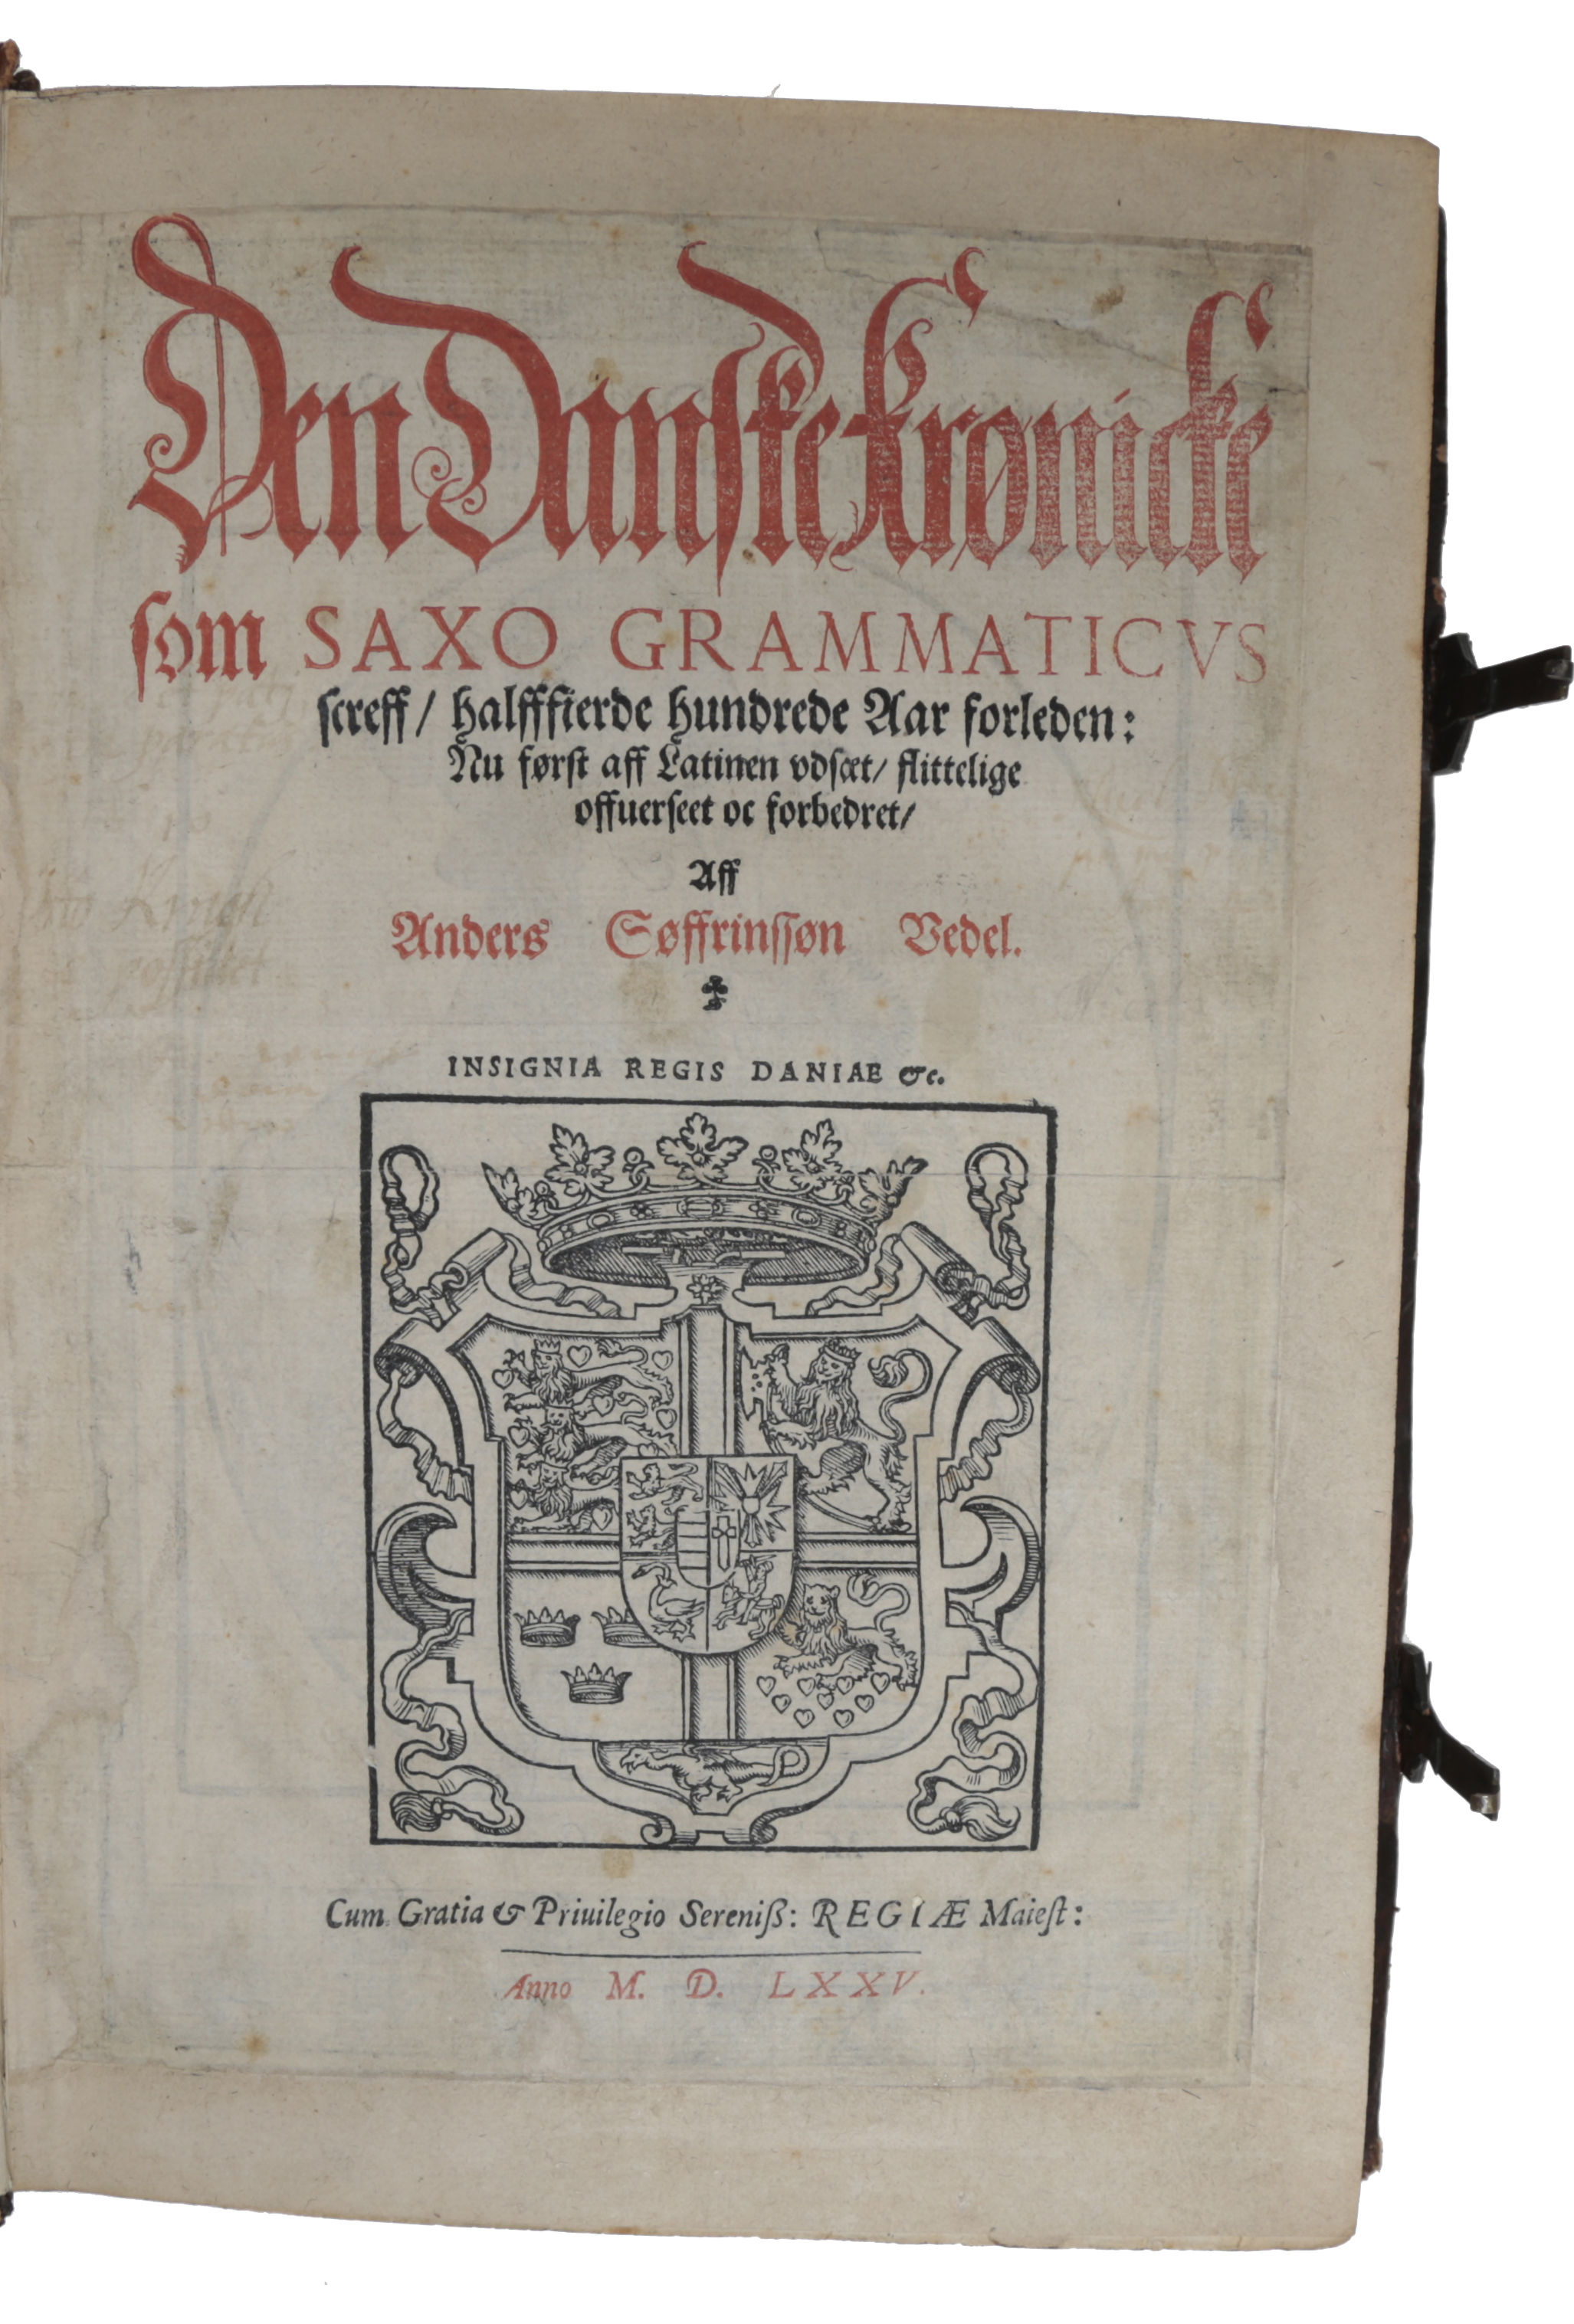 Den Danske Krønicke
som SAXO GRAMMATICVS
screff / halfffierde hundrede Aar forleden:
Nu først aff Latinen vdsæt / flittelige
offuerseet oc forbedret /
Aff
Anders Søffrinssøn Vedel.
INSIGNIA REGIS DANIAE &c.
Cum Gratia & Priuilegio Sereniß: REGIÆ Maiest:
Anno M. D. LXXV.